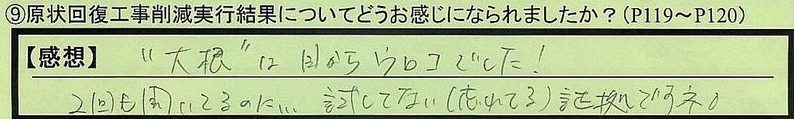 ⑨原状回復工事削減実行結果についてどうお感じになられましたか？(P119～P120)
【感想】 "大根"は目からウロコでした！
2回も聞いてるのに… 試してない(忘れてる)証拠ですネ。